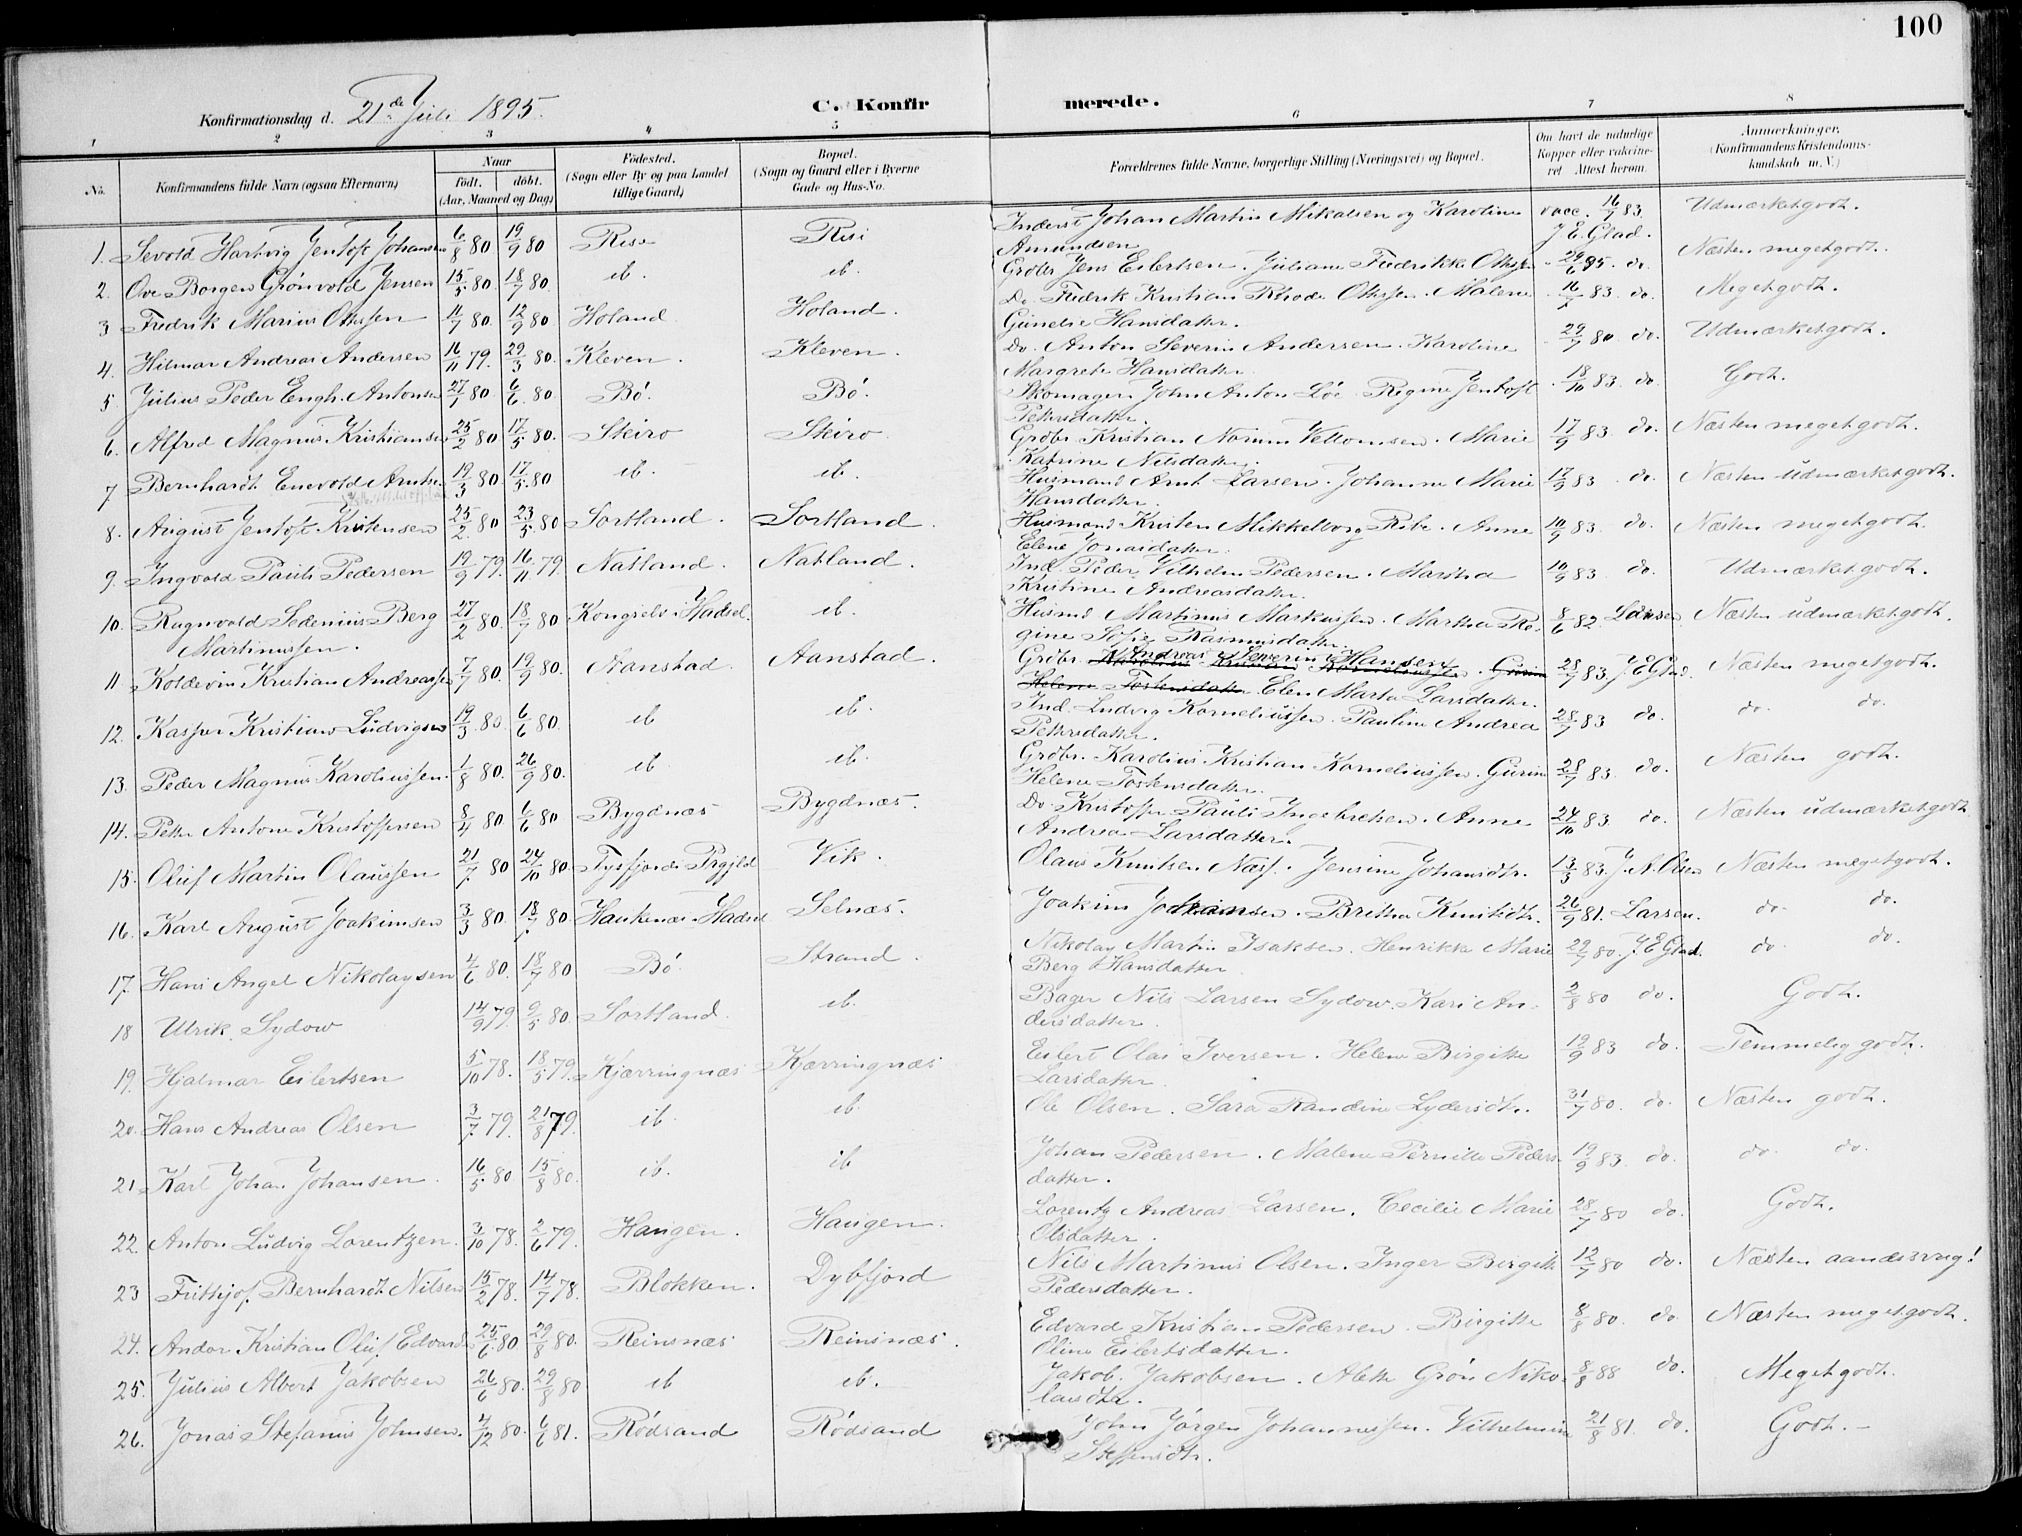 100
Konfirmationsdag d. 21de Juli 1895.
C. Konfirmerede.
1 2 3 4 5 6 7 8
No.
Konfirmandens fulde Navn (ogsaa Efternavn)
Naar
födt. döbt.
(Aar, Maaned og Dag)
Födested.
(Sogn eller By og paa Landet
tillige Gaard)
Bopæl.
(Sogn og Gaard eller i Byerne
Gade og Hus-No.
Forældrenes fulde Navne, borgerlige Stilling (Næringsvei) og Bopæl.
Om havt de naturlige
Kopper eller vakcine-
ret Attest herom.
Anmærkninger.
(Konfirmandens Kristendoms-
kundskab m. V.)
1. Sevold Hartvig Jentoft Johansen 6/8 80 19/9 80 Rise Risi Inderst Johan Martin Mikalsen og Karoline vacc. 16/7 83. Udmærketgodt.
Amundsen J. E. Glad.
2. Ove Borgen Grönvold Jensen 15/5 80 18/7 80 ib. ib. Grdbr Jens Eilertsen. Juliane Fredrikke Ottesen 29/6 95. do. Næsten megetgodt.
3 Fredrik Marius Ottesen 11/7 80 12/9 80 Holand Holand. Do. Fredrik Kristian Rhode Ottesen. Malene 16/7 83. do. Megetgodt.
Gunelie Hansdatter.
4. Hilmar Andreas Andersen 16/11 79. 29/3 80. Kleven. Kleven. Do. Anton Severin Andersen. Karoline 29/7 80 do. Udmærketgodt.
Margrete Hansdatter.
5. Julius Peder Engh. Antonsen 27/1 80 6/6 80 Bö. Bö. Skomager John Anton Löe. Regine Jentoft 18/10 83. do. Godt.
Pettersdatter.
6. Alfred Magnus Kristiansen 25/2 80 17/5 80. Steiro Steiro Grdbr. Kristian Norum Vettomsen. Marie 17/9 83. do. Næsten megetgodt.
Katrine Nilsdatter.
7 Bernhardt Enevold Arntsen 19/3 80 17/5 80 ib. ib. Husmand Arnt Larsen. Johanne Marie 17/9 83 do. Næsten udmærketgodt.
Hansdatter.
8. August Jentoft Kristensen 25/2 80 23/5 80 Sortland. Sortland. Husmand Kristen Mikkelborg Ribe. Anne 10/9 83. do. Næsten megetgodt.
Elene Jonasdatter.
9. Ingvald Pauli Pedersen 19/9 79. 16/11 79. Natland. Natland. Ind. Peder Vilhelm Pedersen. Martha 10/9 83 do. Udmærketgodt.
Kristine Andreasdatter.
10. Ragnvald Sedenius Berg 27/2 80. 18/7 80 Kongselv. Hadsel. ib. Husmd Martinus Markussen. Martha Re- 8/6 82 Larsen Næsten udmærketgodt.
Martinussen. gine Sofie Rasmusdatter.
11. Koldevin Kristian Andreassen 7/7 80. 19/9 80. Aanstad. Aanstad. Grdbr. Andreas Severin Hansen 28/7 83. J. E. Glad. Næsten megetgodt.
Elen Marta Larsdatter.
12. Kasper Kristian Ludvigsen 19/3 80 6/6 80. ib ib. Ind. Ludvig Korneliussen. Pauline Andrea 28/7 83 do. do. do.
Pettersdatter.
13. Peder Magnus Karoliussen. 1/8 80. 26/9 80. ib ib. Grdbr. Karolius Kristian Korneliussen. Gurine 28/7 83. do. Næsten godt.
Helene Tostensdatter.
14. Petter Antone Kristoffersen 8/4 80 6/6 80 Bygdnæs Bygdnæs. Do. Kristoffer Pauli Ingebretsen. Anne 24/10 83 do. Næsten udmærketgodt
Andrea Larsdatter.
15. Oluf Martin Olaussen 21/7 80 24/10 80. Tysfjorden Prgjld Vik. Olaus Knutsen Næss. Jensine Johansdtr. 13/5 83. J. N. Olsen Næsten megetgodt.
16. Karl August Joakimsen 3/3 80. 18/7 80. Haukenæs. Hadsel Selnæs. Joakim Johansen. Britha Knutsdtr. 26/9 81. Larsen. do. do.
17. Hans Angel Nikolaysen 4/6 80. 18/7 80 Bö. Strand. Nikolay Martin Isaksen. Henrikke Marie 29/7 80. J. E. Glad. do. do.
Berg Hansdatter
18 Ulrik Sydow 14/9 79. 9/5 80. Sortland. ib. Bager Nils Larsen Sydow. Kari An- 2/8 80 do. Godt.
dersdatter.
19. Hjalmar Eilertsen 5/10 78. 18/5 79. Kjærringnæs Kjærringnæs Eilert Olai Iversen. Helene Birgitte 19/9 83 do. Temmelig godt.
Larsdatter.
20. Hans Andreas Olsen 3/7 79. 21/8 79. ib ib. Ole Olsen. Sara Randine Lydersdtr. 31/7 80. do. Næsten godt.
21 Karl Johan Johansen. 16/5 80 15/8 80. ib. ib Johan Pedersen. Malene Pernille Peders- 19/9 83. do. do. do.
datter.
22. Anton Ludvig Lorentzen. 3/10 78. 2/6 79. Haugen. Haugen. Lorentz Andreas Larsen. Cecilie Marie 28/7 80 do. Godt.
Olsdatter.
23 Frithjof Bernhardt Nilsen 15/2 78. 14/7 78. Blokken. Dybfjord Nils Martinus Olsen. Inger Birgitte 12/7 80 do. Næsten aandssvag!
Pedersdatter.
24. Andor Kristian Oluf Edvards 25/6 80 29/8 80. Reinsnæs Reinsnæs. Edvard Kristian Pedersen. Birgitte 8/8 80. do. Næsten megetgodt.
Oline Eilertsdatter.
25. Julius Albert Jakobsen 26/6 80. 29/8 80 ib ib. Jakob Jakobsen. Alette Grön Niko- 8/8 88 do. Megetgodt.
laisdtr.
26. Jonas Stefanus Johnsen. 4/12 80. 6/6 81. Rödsand Rödsand John Jörgen Johannessen. Vilhelmine 21/8 81. do. Godt.
Steffensdtr.